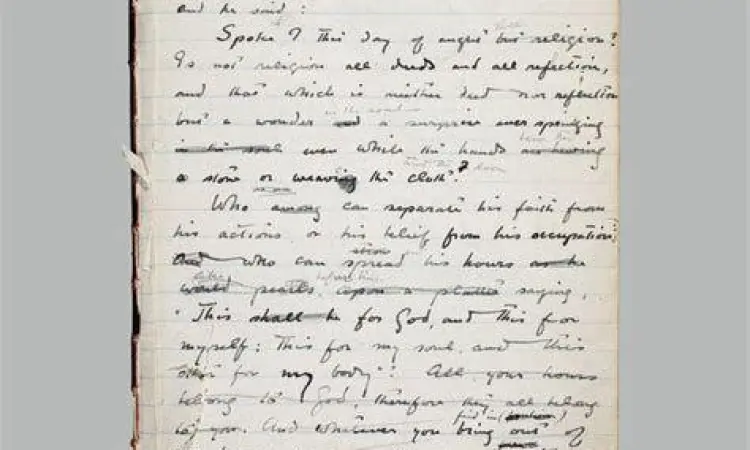 and he said :
Spoke I this day of aught but religion?
Is not religion all deeds and all reflection,
and that which is neither deed nor reflection
in the soul
but a wonder and a surprise ever springing
in the soul even while the hands
hew the
a stone or weaving the cloth?
loom
Who among can separate his faith from
his actions or his belief from his occupation
strow
and who can spread his hours as he
before him
would pearls upon a platter saying,
"This shall be for God, and this for
myself; This for my soul and this
for my body"? All your hours
belong to God, therefore they all belong
find in
to you. And whatever you bring out of